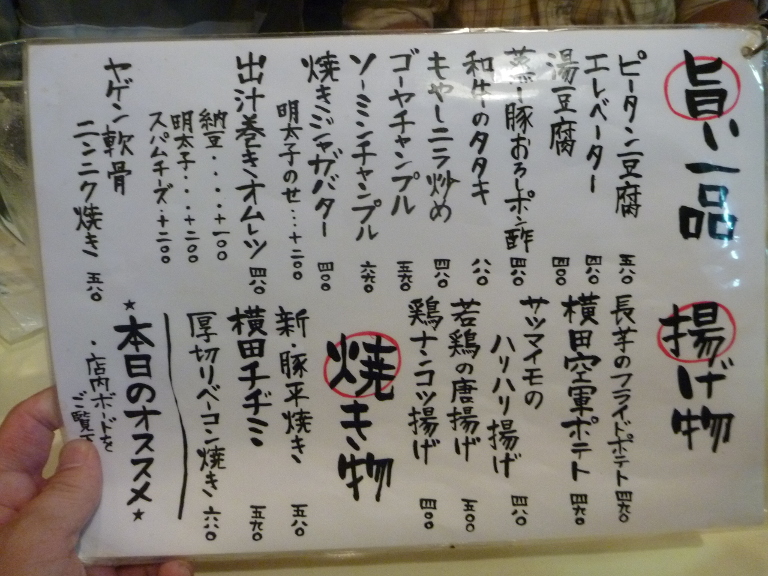 旨い一品
ピータン豆腐 五八〇
エレベーター 四八〇
湯豆腐 四〇〇
蒸し豚おろしポン酢 四八〇
和牛のタタキ 八八〇
もやしニラ炒め 四八〇
ゴーヤチャンプル 五六〇
ソーミンチャンプル 六六〇
焼きジャガバター 四〇〇
明太子のせ・・・+二〇〇
出汁巻きオムレツ 四八〇
納豆・・・・+一〇〇
明太子・・・+二〇〇
スパムチーズ・+二〇〇
ヤゲン軟骨
ニンニク焼き 五八〇
揚げ物
長芋のフライドポテト 四六〇
横田空軍ポテト 四六〇
サツマイモの
ハリハリ揚げ 四八〇
若鶏の唐揚げ 五〇〇
鶏ナンコツ揚げ 四〇〇
焼き物
新・豚平焼き 五八〇
横田チヂミ 五六〇
厚切りベーコン焼き 六八〇
★本日のオススメ★
・店内ボードを
ご覧下